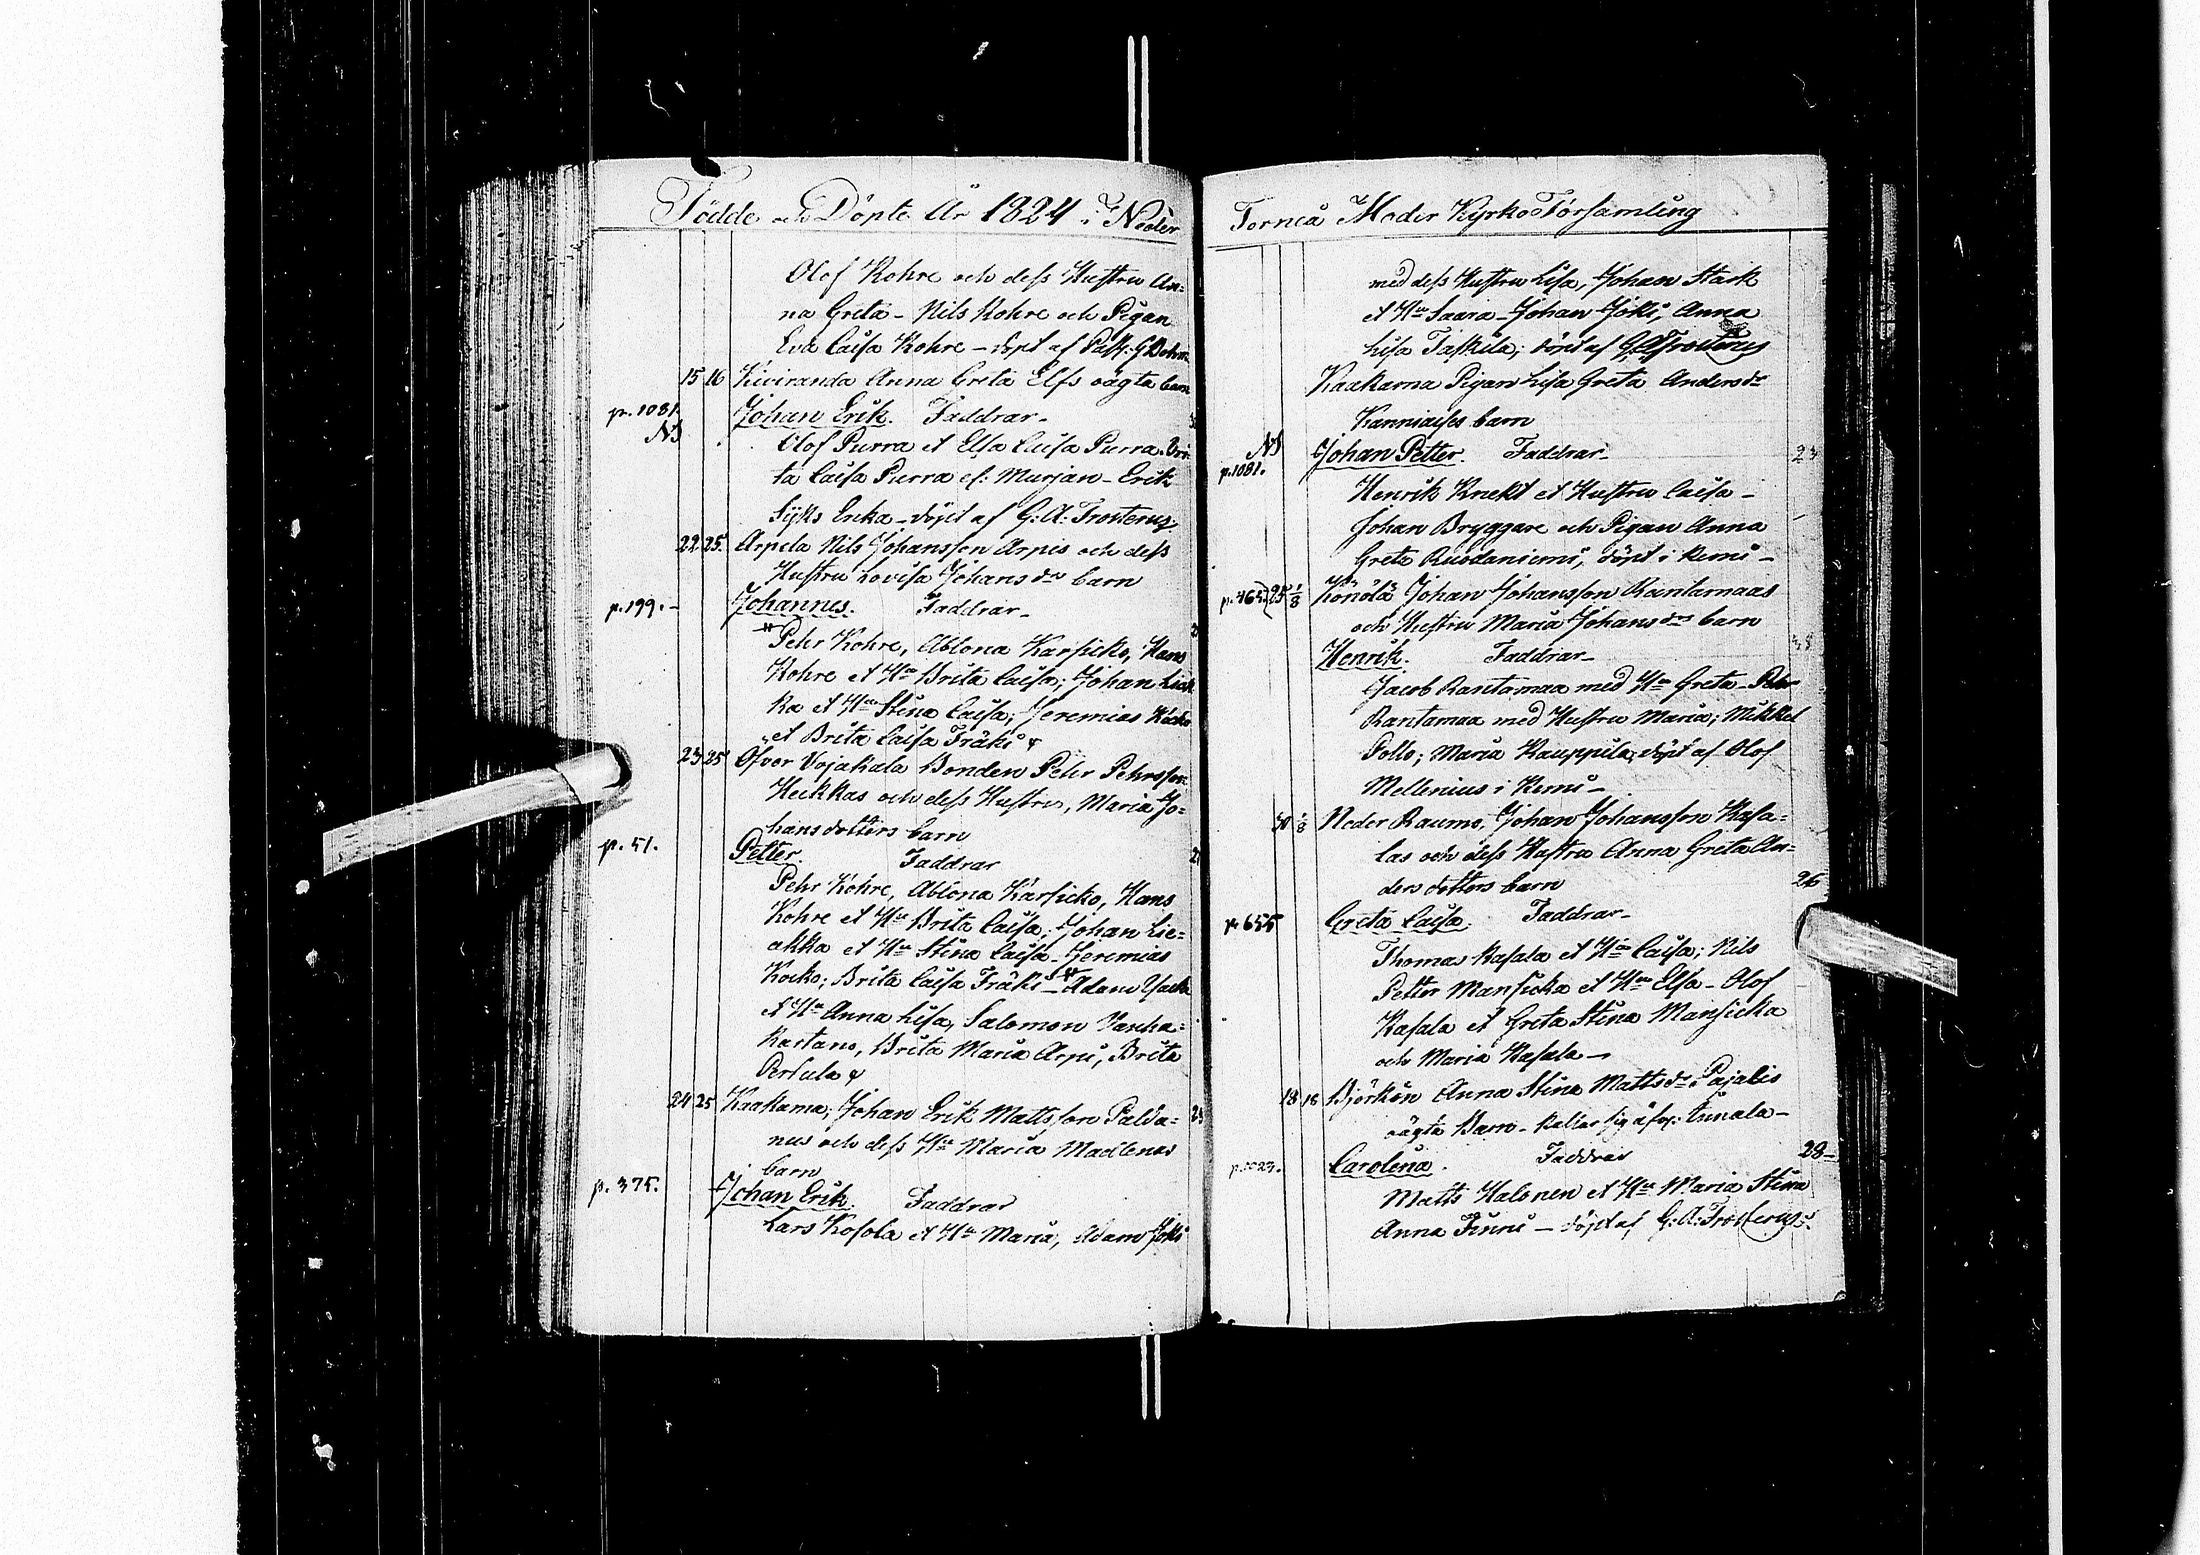 Födde och Döpte År 1824 i Neder
Olof Kohre och dess Hustru An=
na Greta - Nils Kohre och Pigan
Eva Caisa Kohre - döpt af Past: G Bohm
15 16 Kiviranda Anna Greta Elfs oägta barn
p. 1081. Johan Erik. Faddrar -
NB Olof Purra et Elsa Caisa Purra. Bri-
ta Caisa Purra ef: Murjan - Erik
Syks Enka - döpt af G: A: Frosterus
22 25. Arpela Nils Johansson Arpis och dess
Hustru Lovisa Johans dr barn
p. 199. - Johannes. Faddrar -
Pehr Kohre, Ablona Karsicko, Hans
Kohre et Hu Brita Caisa; Johan Liak
ka et Hu Stina Caisa; Jeremias
et Brita Caisa Fräki
23 25 Öfver Vojakala Bonden Pehr Pehrsson
Heikkas och dess Hustru, Maria Jo=
hansdotters barn
p. 51. Petter. Faddrar
Pehr Kohre, Ablona Karsicko, Hans
Kohre et Hu Brita Caisa; Johan Lie=
akka et Hu Stina Caisa - Jeremias
Kocko; Brita Caisa Fräki - Adam
et Hu Anna Lisa, Salomon Vanha=
kartano, Brita Maria Arpi, Brita
Perhula
24 25 Kaakama; Johan Erik Mattsson Palda=
nus och dess Hu Maria Madlenas
barn
p. 375. Johan Erik Faddrar
Lars Kosola et Hu Maria, Adam Joki
Torneå Moder Kyrko Församling
med dess Hustru Lisa, Johan Stark
et Hu Saara - Johan Joki; Anna
Lisa Taskila; döpt af G A Frosterus
Kaakama Pigan Lisa Greta Anders dr
Kanniaises barn
NB Johan Petter. Faddrar - 23
p. 1081. Henrik Knekt et Hustru Caisa -
Johan Bryggare och Pigan Anna
Greta Ruodaniemi, döpt i Kemi -
p. 465. 25 1/8 Könölä Johan Johansson Rantamaas
och Hustru Maria Johans drs barn
Henrik. Faddrar -
Jacob Rantamaa med Hu Greta - Pehr
Rantamaa med Hustru Maria; Mikkel
Pollo; Maria Kauppila, döpt af Olof
Mellenius i Kemi -
30 1/8 Neder Raumo, Johan Johansson Kasa=
las och dess Hustru Anna Greta An=
ders dotters barn 26
p. 655 Greta Caisa. Faddrar -
Thomas Kasala et Hu Caisa; Nils
Petter Mansicka et Hu Elsa - Olof
Kasala et Greta Stina Mansicka
och Maria Kasala -
18 18 Björkön Anna Stina Matts dr Pajalis
oägta Barn - kallar sig äfv: Annala -
p. 1023. Carolina. Faddrar 28 -
Matts Halonen et Hu Maria Stina
Anna Finni - döpt af G: A: Frosterus